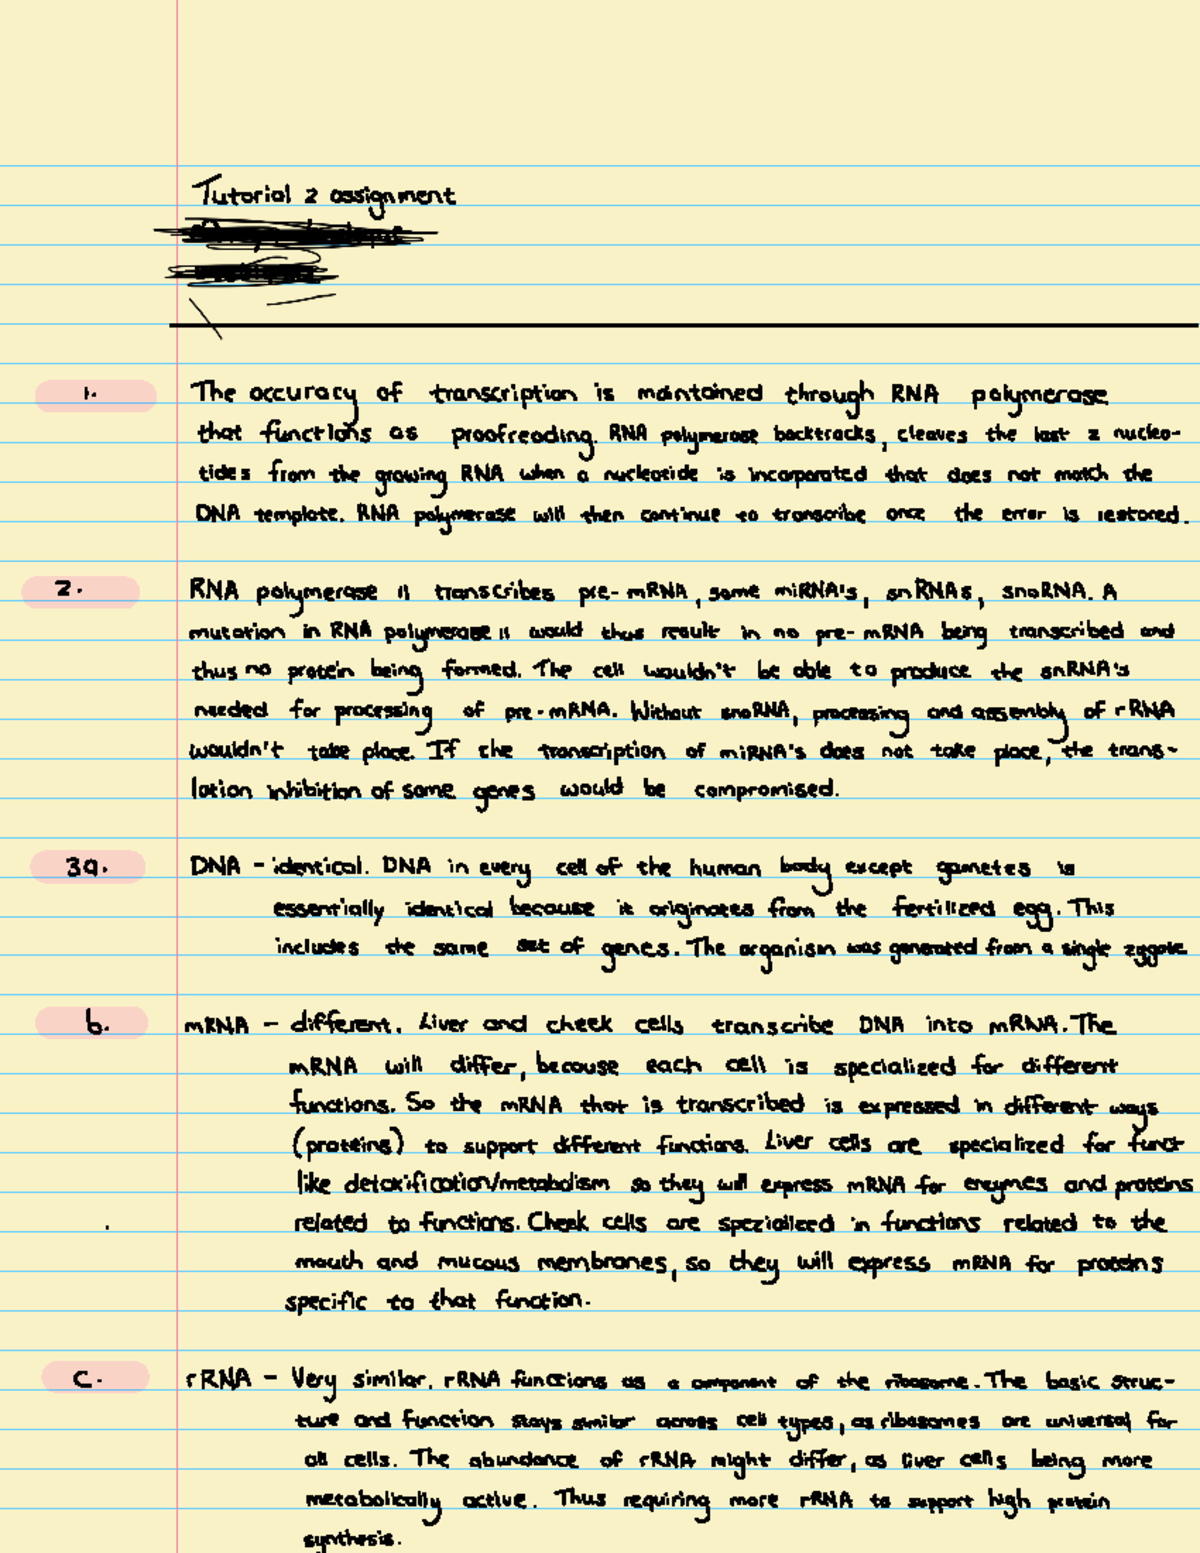 Tutorial 2 assignment
1. The accuracy of transcription is maintained through RNA polymerase
that functions as proofreading. RNA polymerase backtracks, cleaves the last 2 nucleo-
tides from the growing RNA when a nucleotide is incorporated that does not match the
DNA template. RNA polymerase will then continue to transcribe once the error is restored.
2. RNA polymerase II transcribes pre-mRNA, some miRNA's, snRNAs, snoRNA. A
mutation in RNA polymerase II would thus result in no pre-mRNA being transcribed and
thus no protein being formed. The cell wouldn't be able to produce the snRNA's
needed for processing of pre-mRNA. Without snoRNA, processing and assembly of rRNA
wouldn't take place. If the transcription of miRNA's does not take place, the trans-
lation inhibition of some genes would be compromised.
3a. DNA - identical. DNA in every cell of the human body except gametes is
essentially identical because it originates from the fertilized egg. This
includes the same set of genes. The organism was generated from a single zygote
b. mRNA - different. Liver and cheek cells transcribe DNA into mRNA. The
mRNA will differ, because each cell is specialized for different
functions. So the mRNA that is transcribed is expressed in different ways
(proteins) to support different functions. Liver cells are specialized for funct
like detoxification/metabolism so they will express mRNA for enzymes and proteins
related to functions. Cheek cells are spezialized in functions related to the
mouth and mucous membranes, so they will express mRNA for proteins
specific to that function.
c. rRNA - Very similar. rRNA functions as a component of the ribosome. The basic struc-
ture and function stays similar across cell types, as ribosomes are universal for
all cells. The abundance of rRNA might differ, as liver cells being more
metabolically active. Thus requiring more rRNA to support high protein
synthesis.